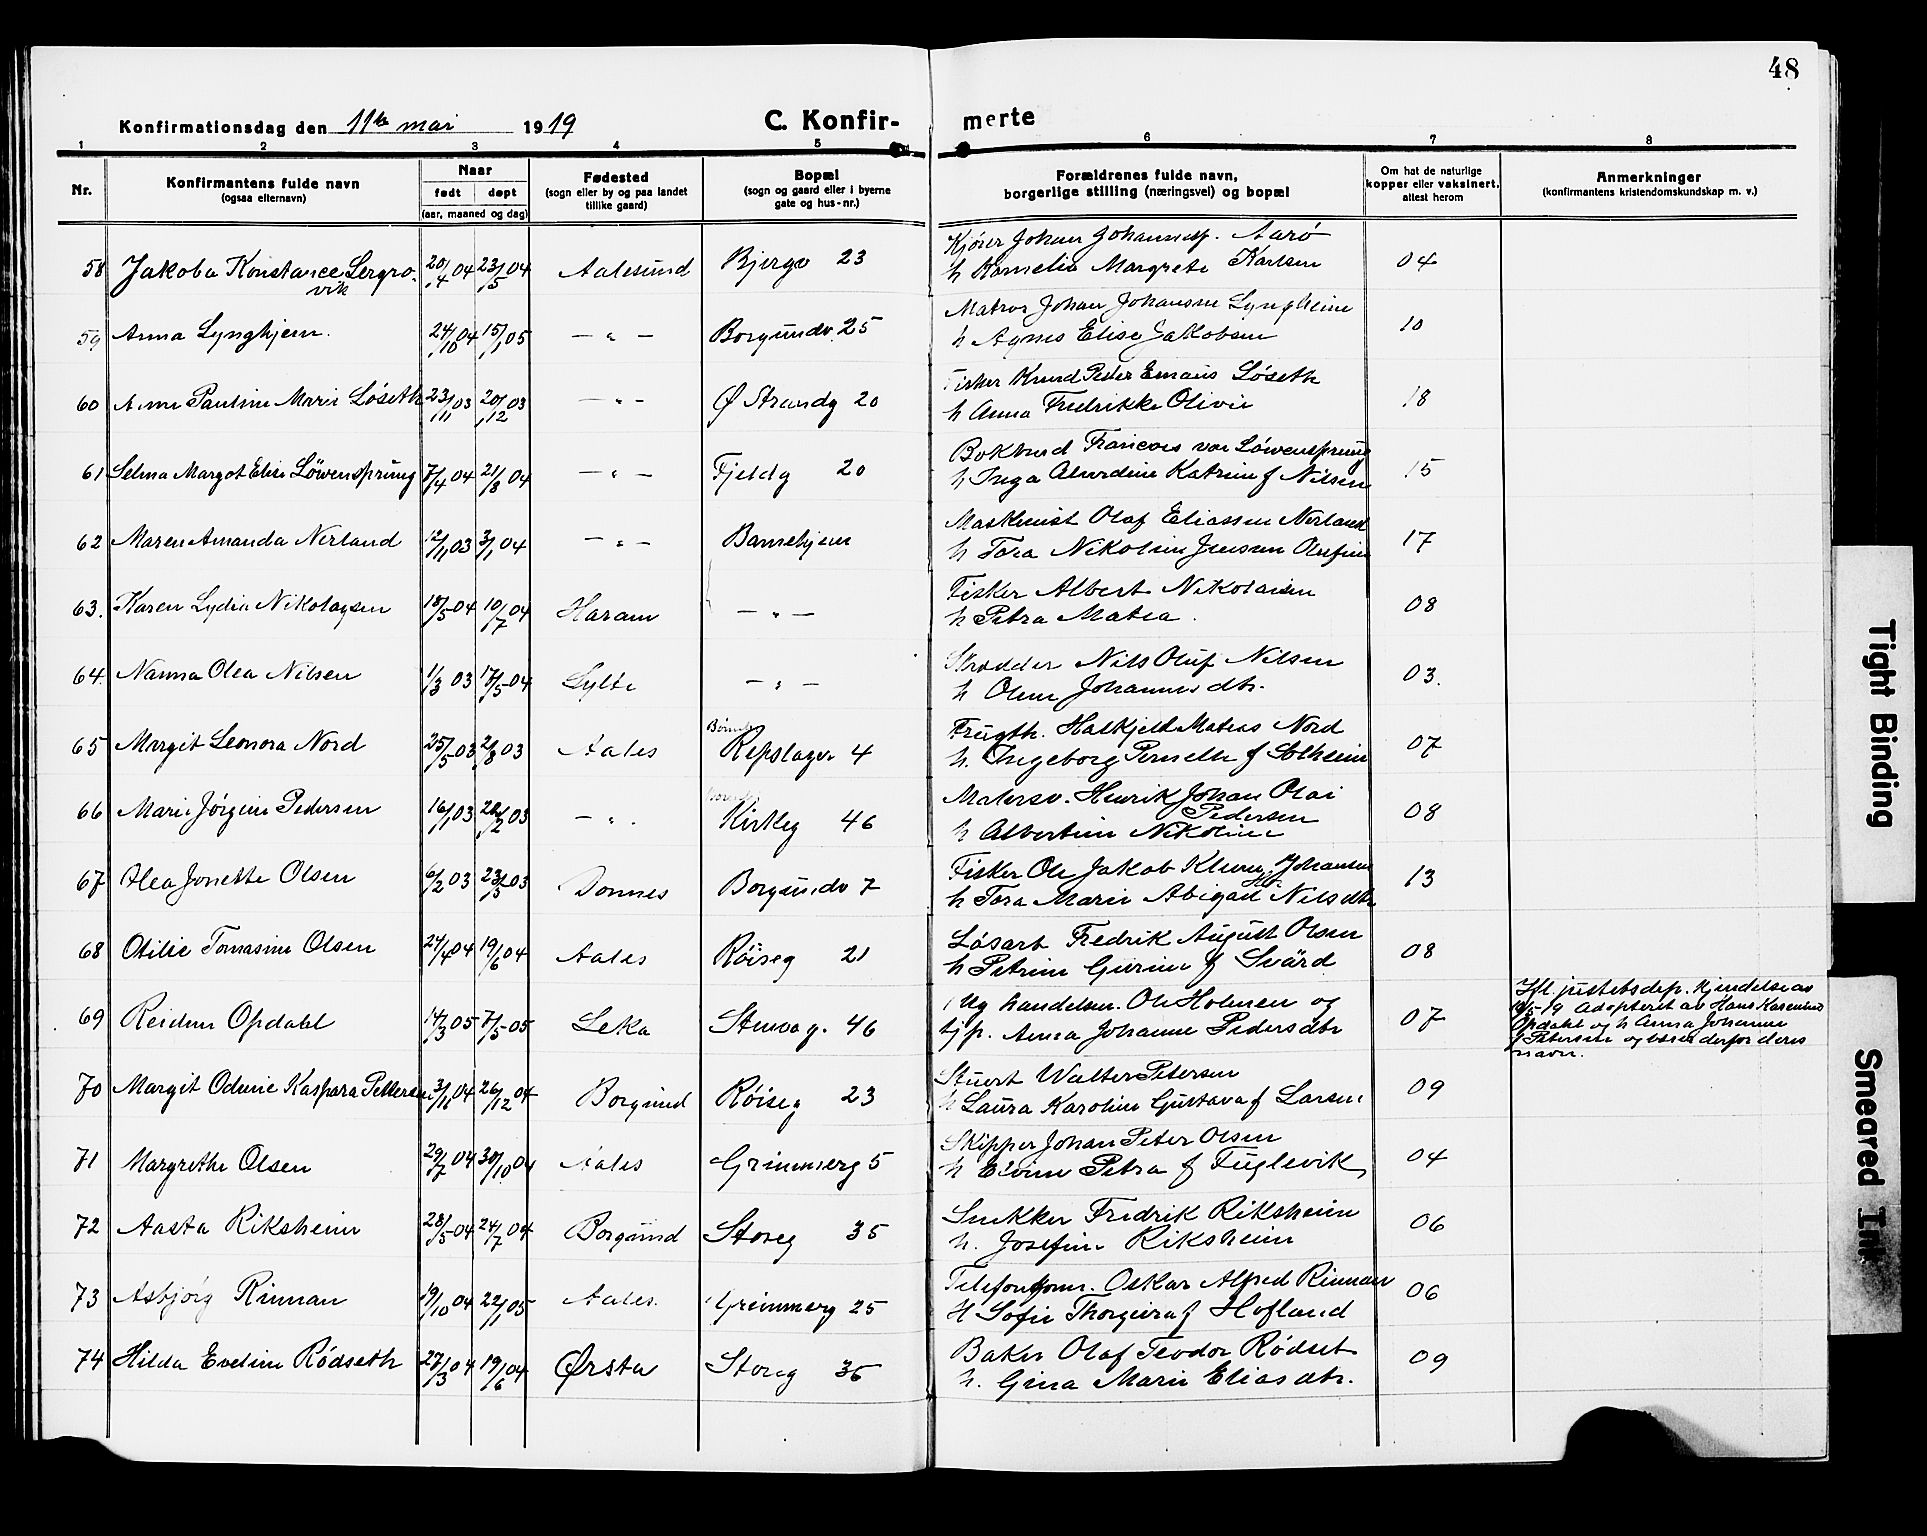 48
Konfirmationsdag den 11te mai 1919
C. Konfir-
merte
1 2 3 4 5 6 7 8
Nr.
Konfirmantens fulde navn
(ogsaa efternavn)
Naar
født døpt
(aar, maaned og dag)
Fødested
(sogn eller by og paa landet
tillike gaard)
Bopæl
(sogn og gaard eller i byerne
gate og hus-nr.)
Forældrenes fulde navn,
borgerlige stilling (næringsvei) og bopæl
Om hat de naturlige
kopper eller vaksinert,
attest herom
Anmerkninger
(konfirmantens kristendomskundskap m. v.)
Kjører Johan Johannesp. Aarö
58 Jakoba Konstance Lergro- 20/4 04 23/5 04 Aalesund Bjergv 23 h Kornelia Margrete Karlsen 04
vik
Matros Johan Johansen Lynghjem
59 Anna Lynghjem. 24/10 04 15/1 05 — " — Borgundv. 25 h Agnes Elise Jakobsen 10
Fisker Knud Peter Emaus Löseth
60 Anne Pauline Marie Löseth 23/11 03 20/12 03 — " — Ø Strandg 20 h Anna Fredrikke Olivie 18
Bokbind Francois von Löwensprung
61 Selma Margot Elise Löwensprung 7/4 04 21/8 04 — " — Fjeldg 20 h Inga Alvardine Katrine f Nilsen 15
Maskinist Olaf Eliassen Nerland
62 Maren Amanda Nerland 12/11 03 3/1 04 — " — Barnehjem h Tora Nikoline Jensen 17
Fisker Albert Nikolaisen
63. Karen Lydia Nikolaysen 18/5 04 10/7 04 Haram — " — h Petra Matea. 08
Skrædder Nils Oluf Nilsen
64. Nanna Olea Nilsen 1/3 03 17/5 04 Sylte — " — h Oline Johannesdtr. 03.
Frugth. Halkjeld Mateas Nord
65 Margit Leonora Nord 25/5 03 2/8 03 Aales Repslagv. 4 h. Ingeborg Pernelle f Solheim 07
Matersv. Henrik Johan Olai
Pedersen
66 Marie Jörgine Pedersen 16/1 03 22/2 03 — " . Kirkeg 46 h Albertine Nikoline 08
Fisker Ole Jakob Klung. Johansen
67 Alea Jonette Olsen 6/2 03 23/5 03 Donnes Borgundv 7 h Tora Marie Abigael Nilsdtr 13
Løsarb Fredrik August Olsen
68 Otilie Tomasine Olsen 24/4 04 19/6 04 Aales Röiseg 21 h Petrine Gurine f Svärd 08
Ug handelsm. Ole Holmen og
69 Reidun Opdahl 14/3 05 7/5 05 Leka Storvag. 46 tjp. Anna Johanne Pedersdtr 07
Ifl justitsdep. kjendelse av
19 Adopteret av Hans
Opdahl og h Anna Johanne
f Petersen og bærer derfor deres
navn.
Stuert Walter Petersen
70 Margit Odinie Kaspara Pettersen 3/11 04 26/12 04 Borgund Röiseg 23 h Laura Karoline Gustava f Larsen 09
Skipper Johan Peter Olsen
71 Margrethe Olsen 29/7 04 30/10 04 Aales Grimmerg 5 h Elvine Petra f Fuglevik 04
Snekker Fredrik Riksheim
72 Aasta Riksheim 28/5 04 24/7 04 Borgund Storeg 35 h. Josefine Riksheim 06
Telefonform. Oskar Alfred Rinnan
73 Asbjörg Rinnan 19/10 04 22/1 05 Aales. Grimmerg 25 H Sofie Thorgiera f Hofland 06
Baker Olaf Teodor Rödset
74 Hilda Eveline Rödseth 27/3 04 19/6 04 Ørsta Storeg 36 h. Gina Marie Eliasdtr. 09
Tight Binding
Smeared Ink